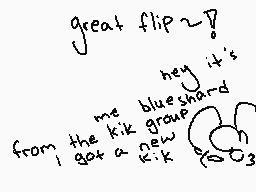 great flip ~!
hey it's
me blueshard
from the kik group
i got a new
kik